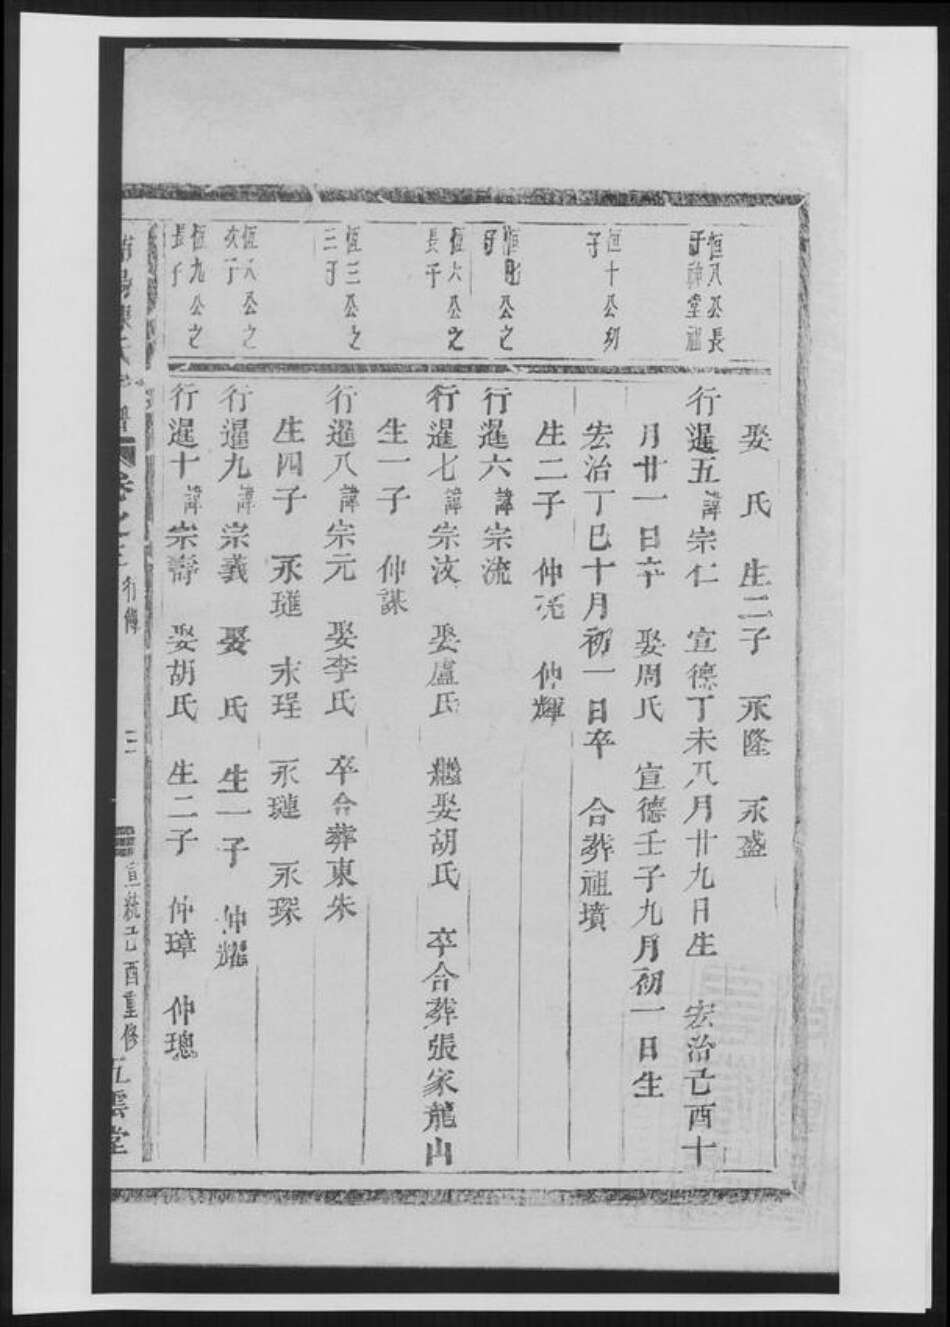 娶 氏 生二子 永隆 永盛
恒八公長
子神堂祖
行暹五諱宗仁 宣德丁未八月廿九日生 宏治己酉十
月廿一日卒 娶周氏 宣德壬子九月初一日生
恒十公幼
子
宏治丁巳十月初一日卒 合葬祖墳
生二子 仲亮 仲輝
公之
子
行暹六諱宗流
恒六公之
長子
行暹七諱宗汶 娶盧氏 繼娶胡氏 卒合葬張家龍山
生一子 仲謀
恒三公之
三子
行暹八諱宗元 娶李氏 卒合葬東朱
生四子 永璡 永珵 永璉 永琛
恒八公之
次子
行暹九諱宗義 娶 氏 生一子 仲耀
恒九公之
長子
行暹十諱宗壽 娶胡氏 生二子 仲璋 仲璁
氏 譜 卷之 行傳 三 宣統己酉重修 五雲堂